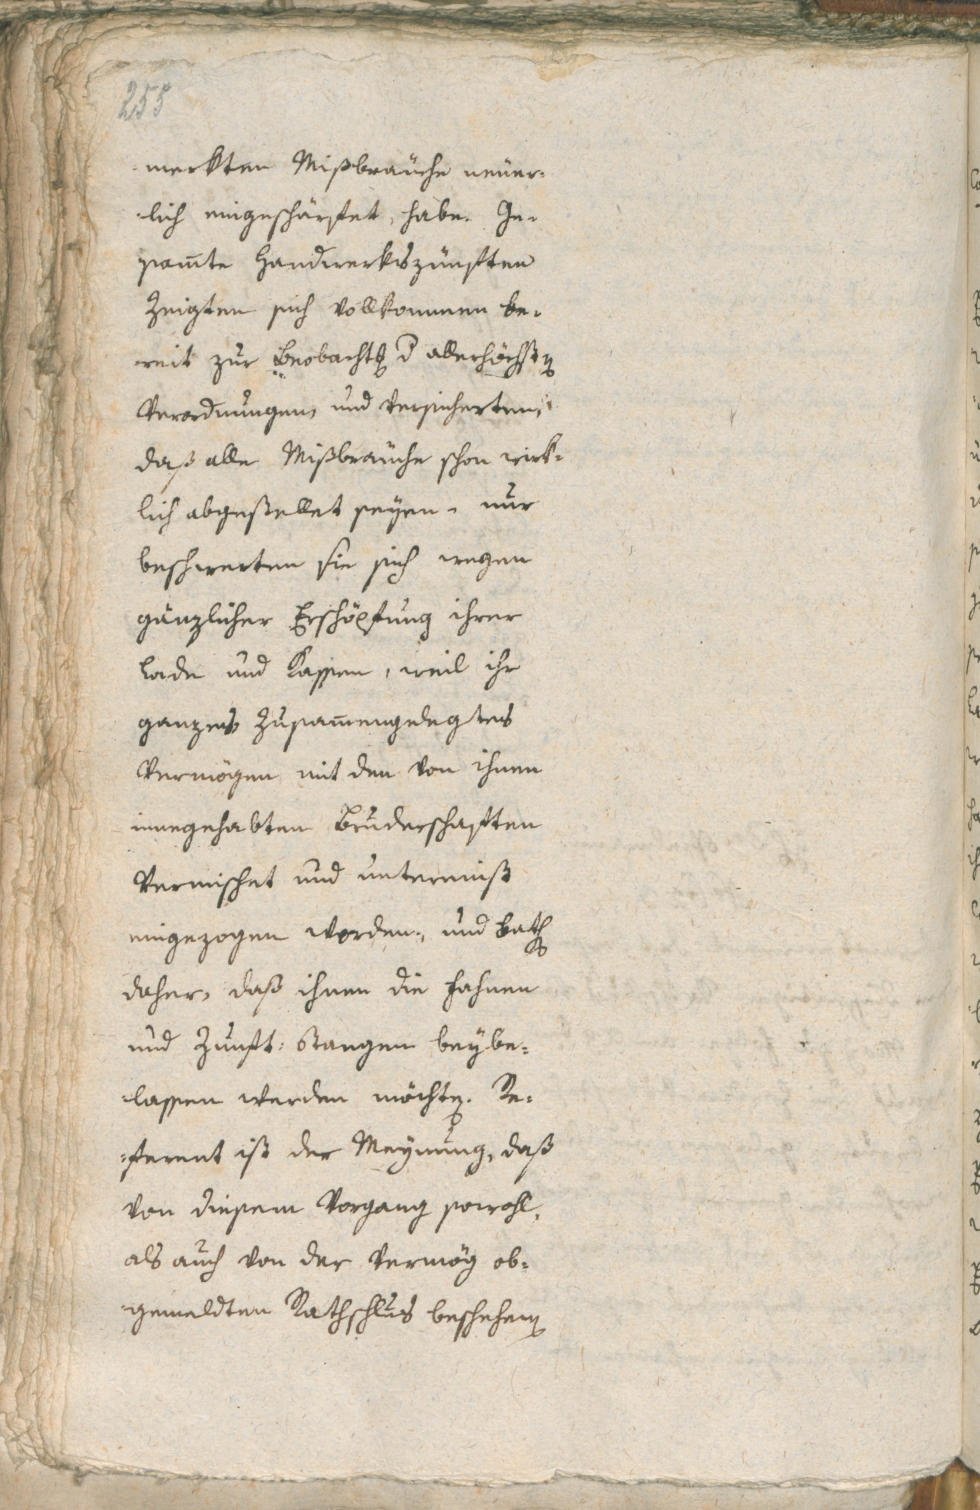 255
merkten Mißbräuche neuer-
lich eingeschärfet, habe. Ge-
sam̅te Handwerkszünften
Zeigten sich vollkommen be-
reit zur Beobachtg d allerhöchsten
Verordnungen, und versicherten,
daß alle Mißbräuche schon wirk-
lich abgestellet seyen. nur
beschwerten sie sich wegen
gänzlicher Erschöpfung ihrer
Lade und Kassen, weil ihr
ganzes Zusam̅engelegtes
Vermögen mit den von ihnen
innegehabten Bruderschaften
Vermischet und untereinst
eingezogen worden, und bathen
daher, daß ihnen die Fahnen
und Zunft: Stangen beybe-
lassen werden möchten. Re-
ferent ist der Meynung, daß
von diesem Vorgang sowohl,
als auch von der Vermög ob-
gemeldten Rathschlus beschehenen